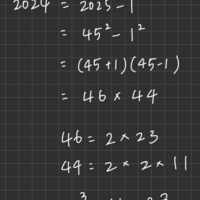 2024 = 2025 - 1
= 45² - 1²
= (45+1)(45-1)
= 46 × 44
46 = 2 × 23
44 = 2 × 2 × 11